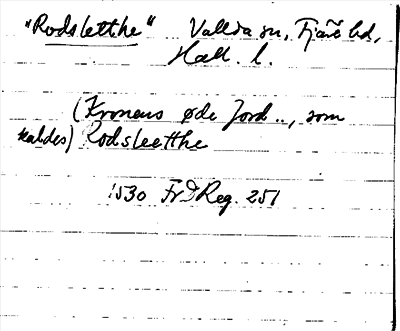 "Rodsletthe" Vallda sn, Fjäre hd,
Hall. l.
(Kronens øde Jord .., som
kaldes) Rodsleetthe
1530 Fr I Reg. 251